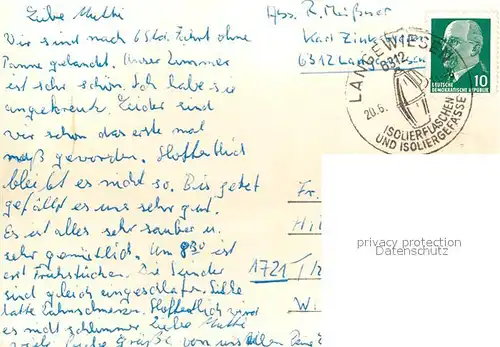 Liebe Mutti
Wir sind nach 6 Std. Fahrt ohne
Panne gelandet. Unser Zimmer
ist sehr schön. Ich habe es
angekreuzt. Leider sind
wir schon das erste mal
naß geworden. Hoffentlich
bleibt es nicht so. Bis jetzt
gefällt es uns sehr gut.
Es ist alles sehr sauber u.
sehr gemütlich. Um 8.30 ist
erst Frühstücken. Die Kinder
sind gleich eingeschlafen. Silke
hatte Zahnschmerzen. Hoffentlich wird
es nicht schlimmer. Liebe Mutti
viele liebe Grüße von uns allen
Abs. R. Meißner
Karl Zink
6312 Langewiesen
LANGEWIESEN
6312
20.6.
ISOLIERFLASCHEN
UND ISOLIERGEFÄSSE
10
DEUTSCHE
DEMOKRATISCHE REPUBLIK
Fr.
Hi
1721
W
privacy protection